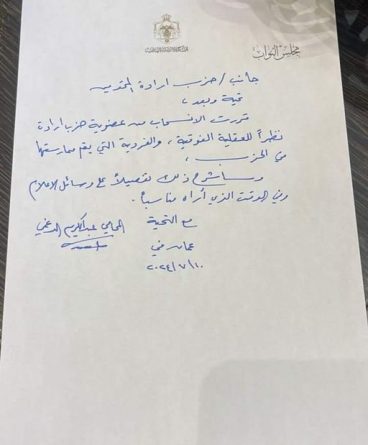 مجلس النواب
جانب / حزب ارادة المحترمين
تحية وبعد ،
قررت الانسحاب من عضوية حزب ارادة
نظراً للعقلية الفوقية ، والفردية التي يتم ممارستها
في الحزب ،
وسأشرح ذلك تفصيلاً على وسائل الاعلام
وفي الوقت الذي أراه مناسباً .
مع التحية
المحامي عبدالكريم الدغمي
عمان في
٢٠٢٤/٧/١٠